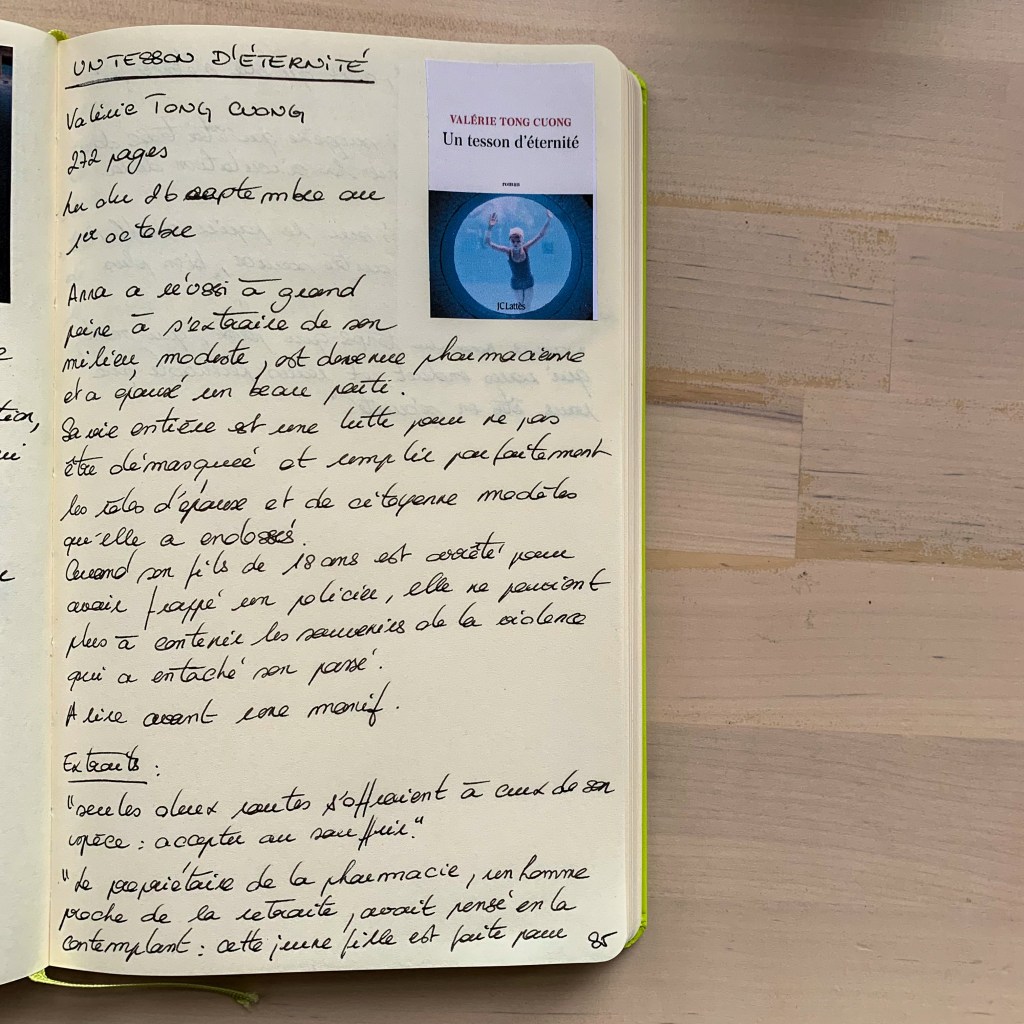 UN TESSON D'ÉTERNITÉ
Valérie TONG CUONG
272 pages
Lu du 26 septembre au
1er octobre
Anna a réussi à grand
peine à s'extraire de son
milieu modeste, est devenue pharmacienne
et a épousé un beau parti.
Sa vie entière est une lutte pour ne pas
être démasqueé et remplir parfaitement
les rôles d'épouse et de citoyenne modèles
qu'elle a endossés.
Quand son fils de 18 ans est arrêté pour
avoir frappé un policier, elle ne parvient
plus à contenir les souvenirs de la violence
qui a entaché son passé.
A lire avant une manif.
Extraits :
"seules deux routes s'offraient à ceux de son
espèce : accepter ou souffrir."
"Le propriétaire de la pharmacie, un homme
proche de la retraite, avait pensé en la
contemplant : cette jeune fille est faite pour
85
VALÉRIE TONG CUONG
Un tesson d'éternité
roman
JC Lattès
tion,